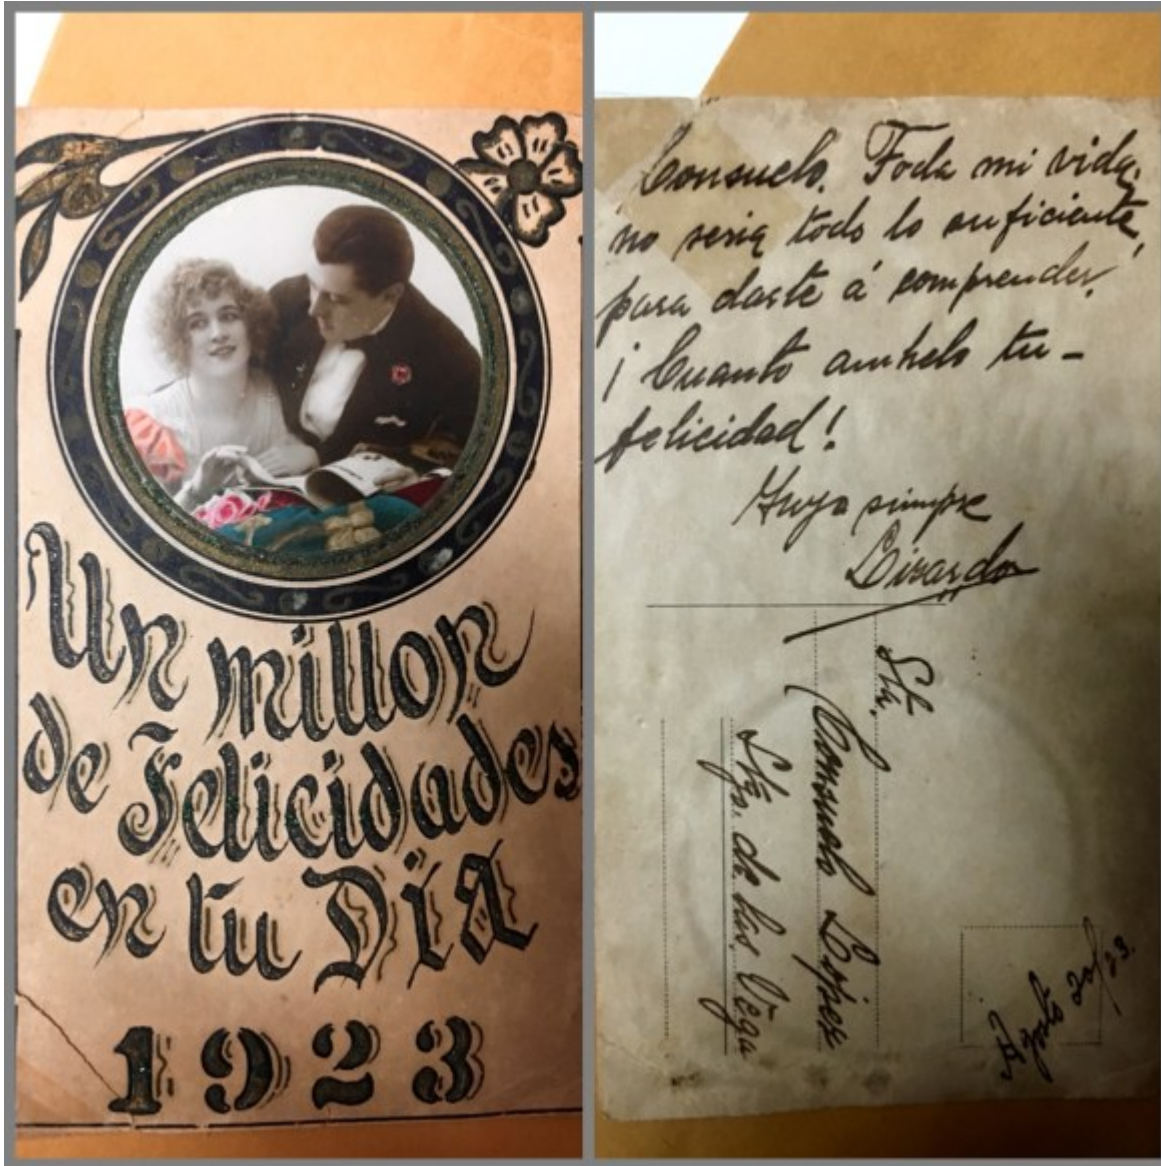 Un millon
de Felicidades
en tu Día
1923
Consuelo. Toda mi vida,
no seria todo lo suficiente,
para darte á comprender,
¡Cuanto anhelo tu -
felicidad!
Tuyo siempre
Lisardo
Sta.
Consuelo Lopez
Stgo. de las Vega
Agosto 20/23.